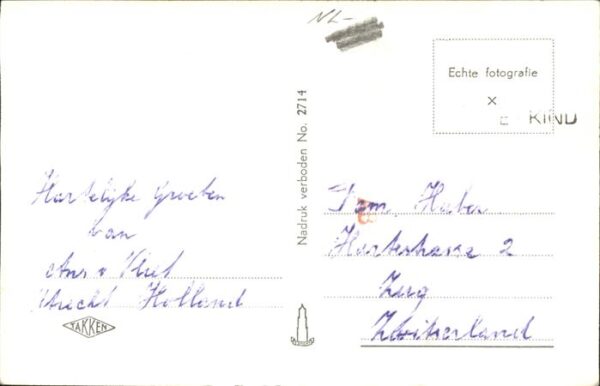 NL-
Echte fotografie
x
KIND
Nadruk verboden No. 2714
Hartelijke Groeten
van
Ans v Vliet
Utrecht Holland
TAKKEN
Fam. Huber
2
Zug
Zwitserland